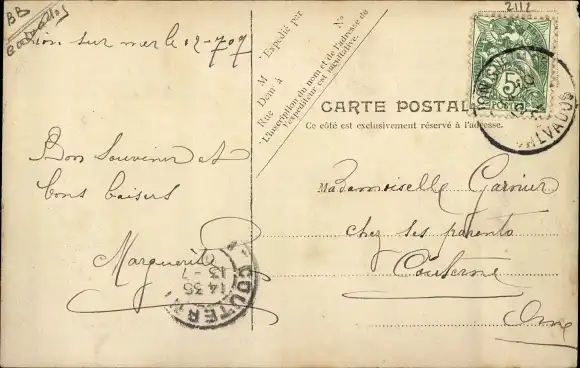 BB
Lion sur mer le 12-7 07
Bon souvenir et
bons baisers
Marguerite
COUTERNE
14 35
13 - 7
Expédié par
M
Dem<sup>t</sup> à
Rue
N°
L'inscription du nom et de l'adresse de
l'expéditeur est facultative.
2112
5c
POSTES
CALVADOS
CARTE POSTALE
Ce côté est exclusivement réservé à l'adresse.
Mademoiselle Garnier
chez ses parents
Couterne
Orne